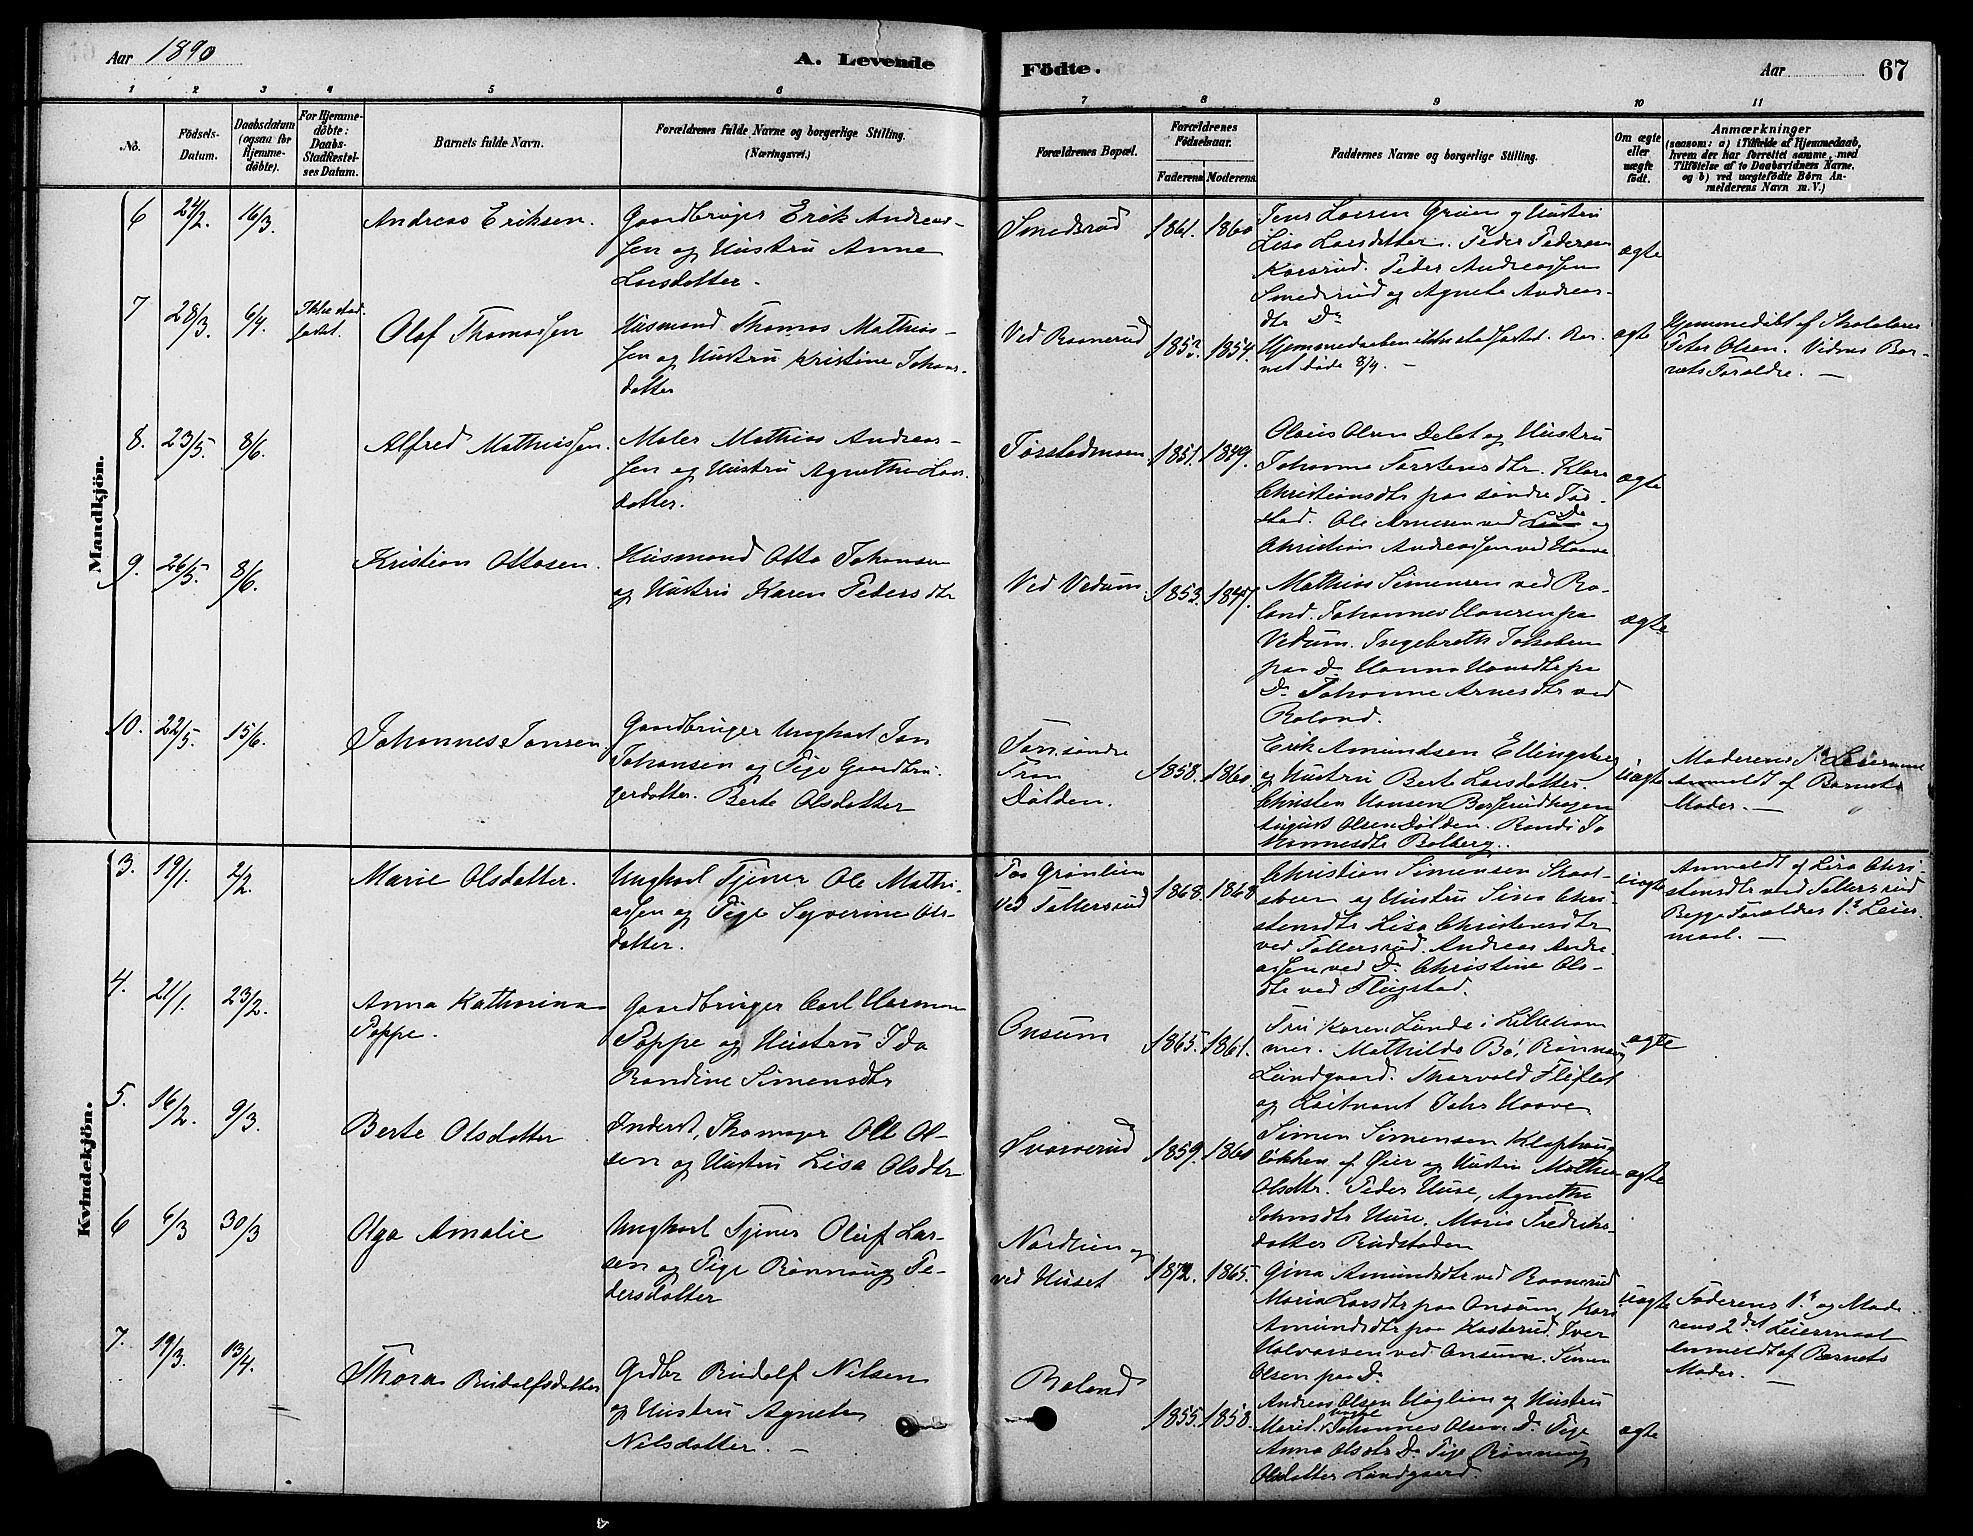 Aar 1890
A. Levende
Födte.
Aar
67
1 2 3 4 5 6 7 8 9 10 11
No.
Födsels-
Datum.
Daabsdatum
(ogsaa for
Hjemme-
döbte).
For Hjemme-
döbte:
Daabs-
Stadfæstel-
ses Datum.
Barnets fulde Navn.
Forældrenes fulde Navne og borgerlige Stilling.
(Næringsvei.)
Forældrenes Bopæl.
Forældrenes
Födselsaar.
Faderens Moderens
Faddernes Navne og borgerlige Stilling.
Om ægte
eller
uægte
födt.
Anmærkninger
(saasom: a) i Tilfælde af Hjemmedaab,
hvem der har forrettet samme, med
Tilföielse af to Daabsvidners Navne,
og b) ved uægtefödte Börn An-
melderens Navn m. V.)
Mandkjön.
6 24/2. 16/3. Andreas Eriksen.
Gaardbruger Erik Andreas-
sen og Hustru Anne
Larsdatter.
Smedsrud 1861. 1860
Jens Larsen Grün og Hustru
Lisa Larsdatter. Peder Pedersen
Korsrud. Peder Andreassen
Smedsrud og Agnete Andreas-
dtr Do
ægte
7 28/3. 6/4 Ikke stad-
fæstet.
Olaf Thomassen
Husmand Thomas Mathias-
sen og Hustru Kristine Johans-
datter
Ved Raanerud 1854.
Hjemmedaaben ikke stadfæstet. Bar-
net döde 8/4. —
ægte
Hjemmedöbt af Skolelærer
Peter Olsen. Vidner Bar-
nets Forældre. —
8. 23/5. 8/6. Alfred Mathiassen.
Maler Mathias Andreas-
sen og Hustru Agnethe Lars-
datter.
Torstadmoen 1851. 1849.
Olaus Olsen Delet og Hustru
Johanne Torstensdtr. Klara
Christiansdtr paa söndre Tor-
stad. Ole Arnesen ved og
Christian Andreassen ved Haave
ægte
9. 26/5. 8/6. Kristian Ottosen.
Husmand Otto Johansen
og Hustru Karen Pedersdtr
Ved Vedum 1853. 1847.
Mathias Simensen ved Ro-
land. Johannes Hansen paa
Vedum. Ingebreth Jakobsen
paa Do Hanna Hansdtr paa
Do Johanne Arnesdtr ved
Roland.
ægte
10. 22/5. 15/6. Johannes Jansen
Gaardbruger Ungkarl Jan
Johansen og Pige Gaardbru-
gerdatter. Berte Olsdatter
söndre
Fron
Dölden.
1858. 1860.
Erik Amundsen Ellingsberg
og Hustru Berte Larsdatter.
Christen Hansen Berserudhagen
August Olsen Dölden. Randi Jo
hannesdtr Bolberg.
uægte
Moderens 1ste Leiermaal
Anmeldt af Barnets
Moder. —
Kvindekjön.
3. 19/1. 2/2. Marie Olsdatter.
Ungkarl Tjener Ole Mathi-
assen og Pige Syverine Ols-
datter.
Paa Grönlien
ved Tollersrud
1868. 1868
Christian Simensen Skaar-
steen og Hustru Sina Chri-
stensdtr Lisa Christensdtr
ved Tollersrud. Andreas Andre
assen ved Do Christine Ols-
dtr ved Flugstad.
uægte
Anmeldt af Lisa Chri-
stensdtr ved Tollersrud
Begge Forældres 1ste Leier-
maal. —
4. 21/1. 23/2. Anna Katharina
Poppe.
Gaardbruger Carl Herman
Poppe og Hustru Ida
Randine Simensdtr
Onsum 1865. 1861.
Fru Karen Lunde i Lilleham
mer. Mathilde Bö, Rönnaug
Lundgaard. Tharvald Fliflet
og Löitnant Johs Haave
ægte
5. 16/2. 9/3. Berte Olsdatter
Inderst, Skomager Ole Ol-
sen og Hustru Lisa Olsdtr
Svarverud 1859. 1860
Simen Simensen Klaphaug
lökken af Öier og Hustru Mathea
Olsdtr. Peder Huse, Agnethe
Johnsdtr Huse. Maria Fredriks-
datter Rudstaden
ægte
6 6/3 30/3 Olga Amalie
Ungkarl Tjener Oluf Lar-
sen og Pige Rönnaug Pe-
dersdatter
Nordlien og
ved Huset
1872. 1865.
Gina Amundsdtr ved Raanerud
Maria Larsdtr paa Onsum, Kari
Amundsdtr paa Kasterud. Iver
Halvarsen ved Onsum. Simen
Olsen paa Do
uægte
Faderens 1ste og Mode-
rens 2det Leiermaal
Anmeldt af Barnets
Moder. —
7. 19/3. 13/4. Thora Rudolfsdatter
Grdbr Rudolf Nilsen
og Hustru Agnete
Nilsdatter. —
Roland
1855. 1858.
Andreas Olsen Haglien og Hustru
Marit. Johannes Olsen Do Pige
Anna Olsdtr Do Pige Rönnaug
Olsdatter Lundgaard.
ægte